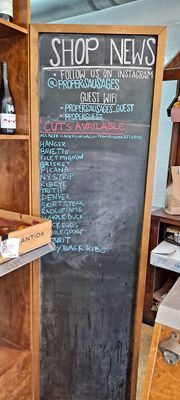 SHOP NEWS
• FOLLOW US ON INSTAGRAM
@PROPERSAUSAGES
GUEST WIFI
• PROPERSAUSAGES_GUEST
• PROPERGUEST
CUTS AVAILABLE
HANGER
BAVETTE
FILET MIGNON
BRISKET
PICANA
NY STRIP
RIBEYE
TRI TIP
DENVER
SKIRT STEAK
RACK OF LAMB
WHOLE DUCK
DUCK EGGS
WHOLE GOOSE
RABBIT
BABY BACK RIBS
ANTIDA